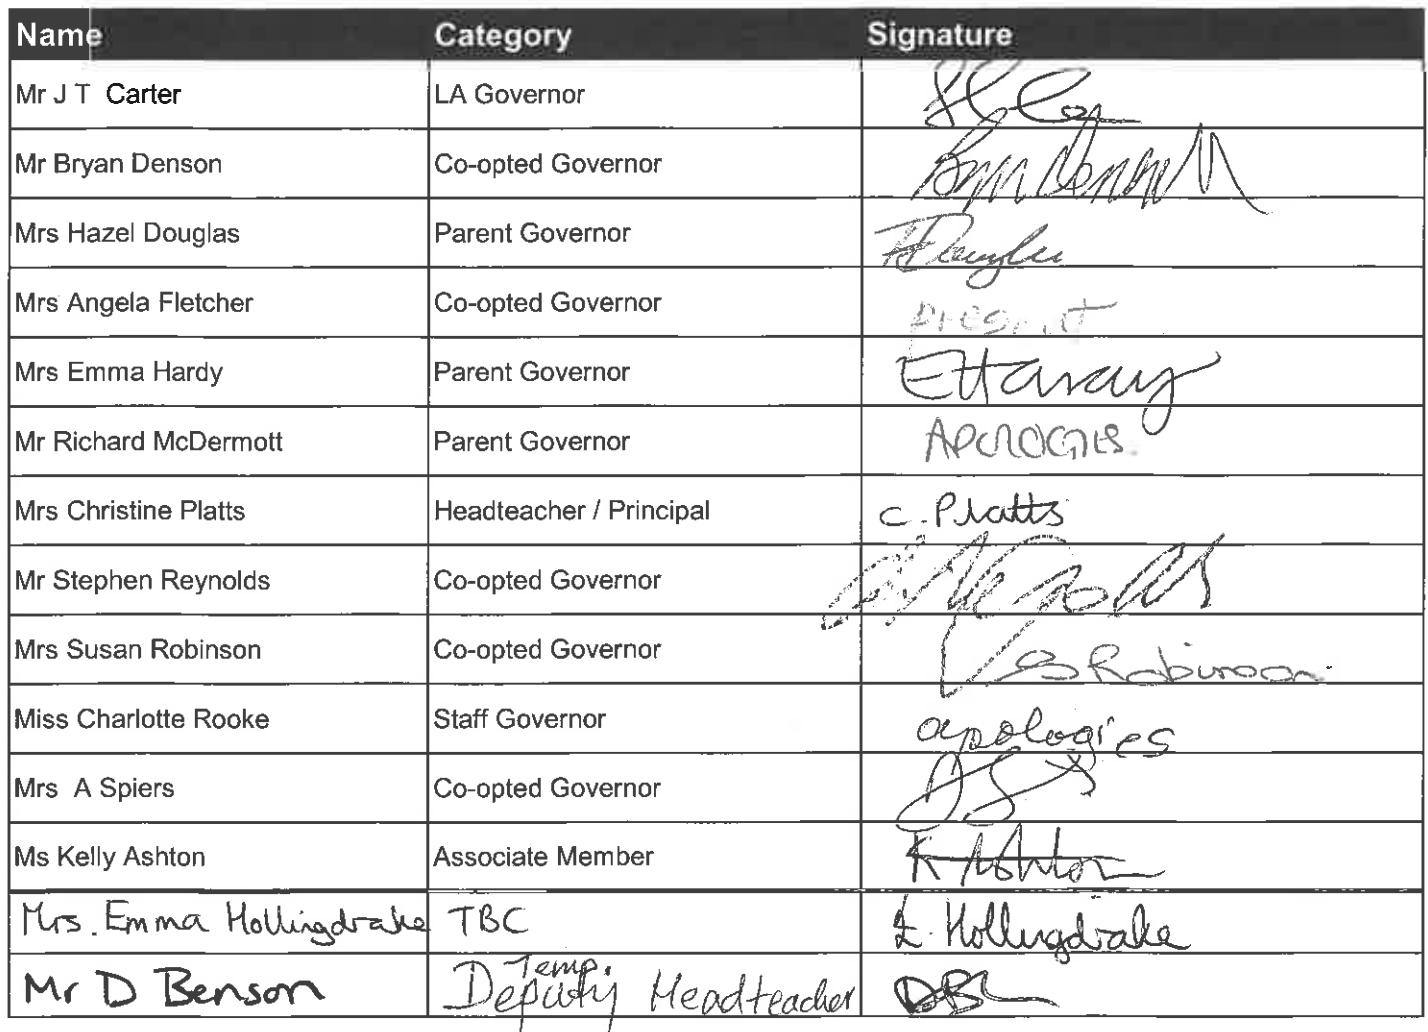 Name Category Signature
Mr J T Carter LA Governor
Mr Bryan Denson Co-opted Governor
Mrs Hazel Douglas Parent Governor HDouglas
Mrs Angela Fletcher Co-opted Governor present
Mrs Emma Hardy Parent Governor EHardy
Mr Richard McDermott Parent Governor APOLOGIES.
Mrs Christine Platts Headteacher / Principal C. Platts
Mr Stephen Reynolds Co-opted Governor
Mrs Susan Robinson Co-opted Governor S Robinson
Miss Charlotte Rooke Staff Governor apologies
Mrs A Spiers Co-opted Governor
Ms Kelly Ashton Associate Member K Ashton
Mrs. Emma Hollingdrake TBC E. Hollingdrake
Temp.
Mr D Benson Deputy Headteacher